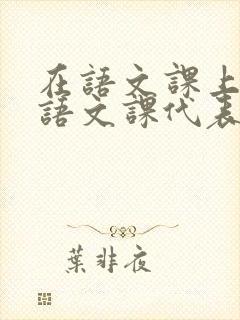 在語文課上
語文課代表
葉非夜